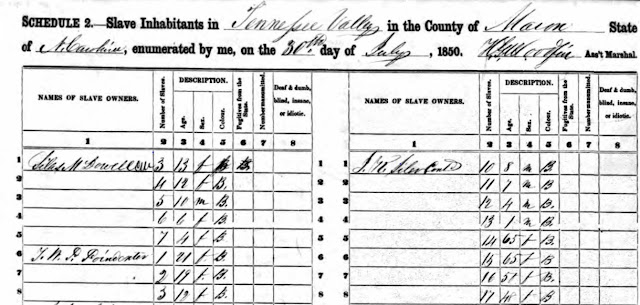 SCHEDULE 2.—Slave Inhabitants in Tennessee Valley in the County of Macon State
of N. Carolina, enumerated by me, on the 30th day of July, 1850. Ass't Marshal.
NAMES OF SLAVE OWNERS. Number of Slaves. DESCRIPTION. Age. Sex. Colour. Fugitives from the State. Number manumitted. Deaf & dumb, blind, insane, or idiotic. NAMES OF SLAVE OWNERS. Number of Slaves. DESCRIPTION. Age. Sex. Colour. Fugitives from the State. Number manumitted. Deaf & dumb, blind, insane, or idiotic.
1 2 3 4 5 6 7 8 1 2 3 4 5 6 7 8
1 Silas McDowell 3 13 f B. 1 1 J. R. Siler Contd 10 8 m B.
2 4 12 f B. 2 2 11 7 m B.
3 5 10 m B. 3 3 12 4 m B.
4 6 6 f B. 4 4 13 1 m B.
5 7 4 f B. 5 5 14 65 f B.
6 T. W. P. Poindexter 1 21 f B. 6 6 15 65 f B.
7 2 19 f B. 7 7 16 57 f B.
8 3 12 f B. 8 8 17 f B.